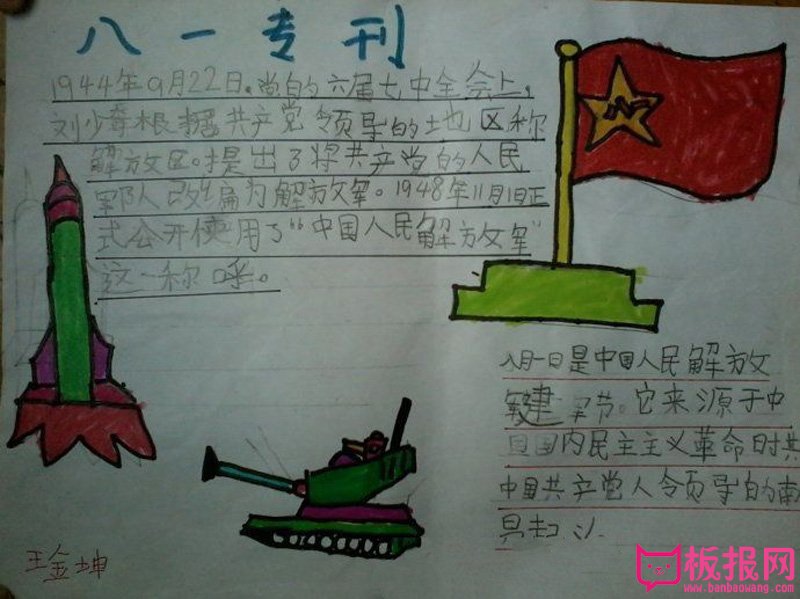 八一专刊
1944年9月22日。党的六届七中全会上，
刘少奇根据共产党领导的地区称
解放区。提出了将共产党的人民
军队改编为解放军。1948年11月1日正
式公开使用了“中国人民解放军”
这一称呼。
八月一日是中国人民解放
军建军节。它来源于中
国国内民主主义革命时共
中国共产党人领导的南
昌起义.
王金坤
板报网
www.banbaowang.com